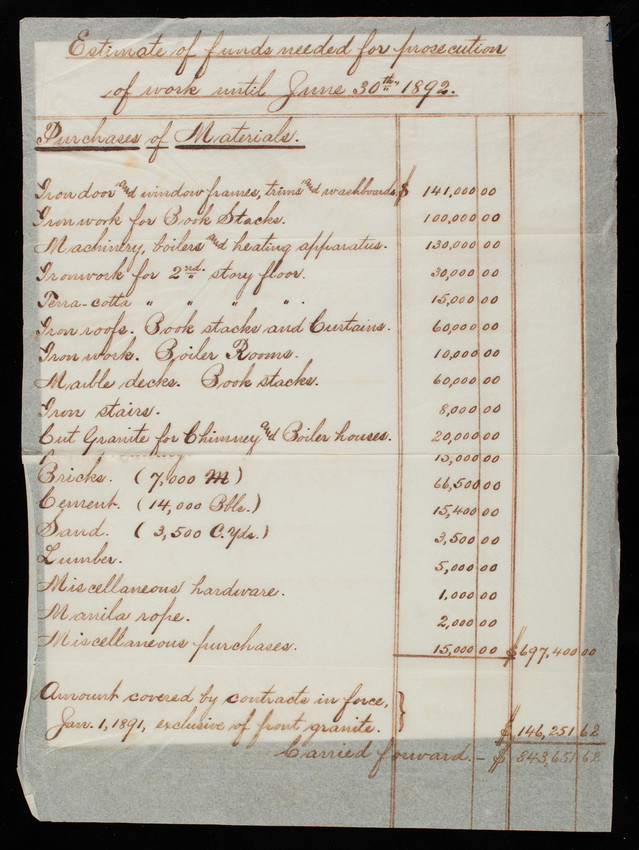 Estimate of funds needed for prosecution
of work until June 30th, 1892.
Purchases of Materials.
Iron door and window frames, trims and washboards. $ 141,000 00
Iron work for Book Stacks. 100,000 00
Machinery, boilers and heating apparatus. 130,000 00
Ironwork for 2nd. story floor. 30,000 00
Terra-cotta " " " ". 15,000 00
Iron roofs. Book stacks and Curtains. 60,000 00
Iron work. Boiler Rooms. 10,000 00
Marble decks. Book stacks. 60,000 00
Iron stairs. 8,000 00
Cut Granite for Chimney and Boiler houses. 20,000 00
15,000 00
Bricks. (7,000 M) 66,500 00
Cement. (14,000 Bbls.) 15,400 00
Sand. (3,500 C. Yds.) 3,500 00
Lumber. 5,000 00
Miscellaneous hardware. 1,000 00
Manila rope. 2,000 00
Miscellaneous purchases. 15,000 00 $ 697,400 00
Amount covered by contracts in force,
Jan. 1, 1891, exclusive of front granite. } $ 146,251 62
Carried forward. - $ 843,651 62